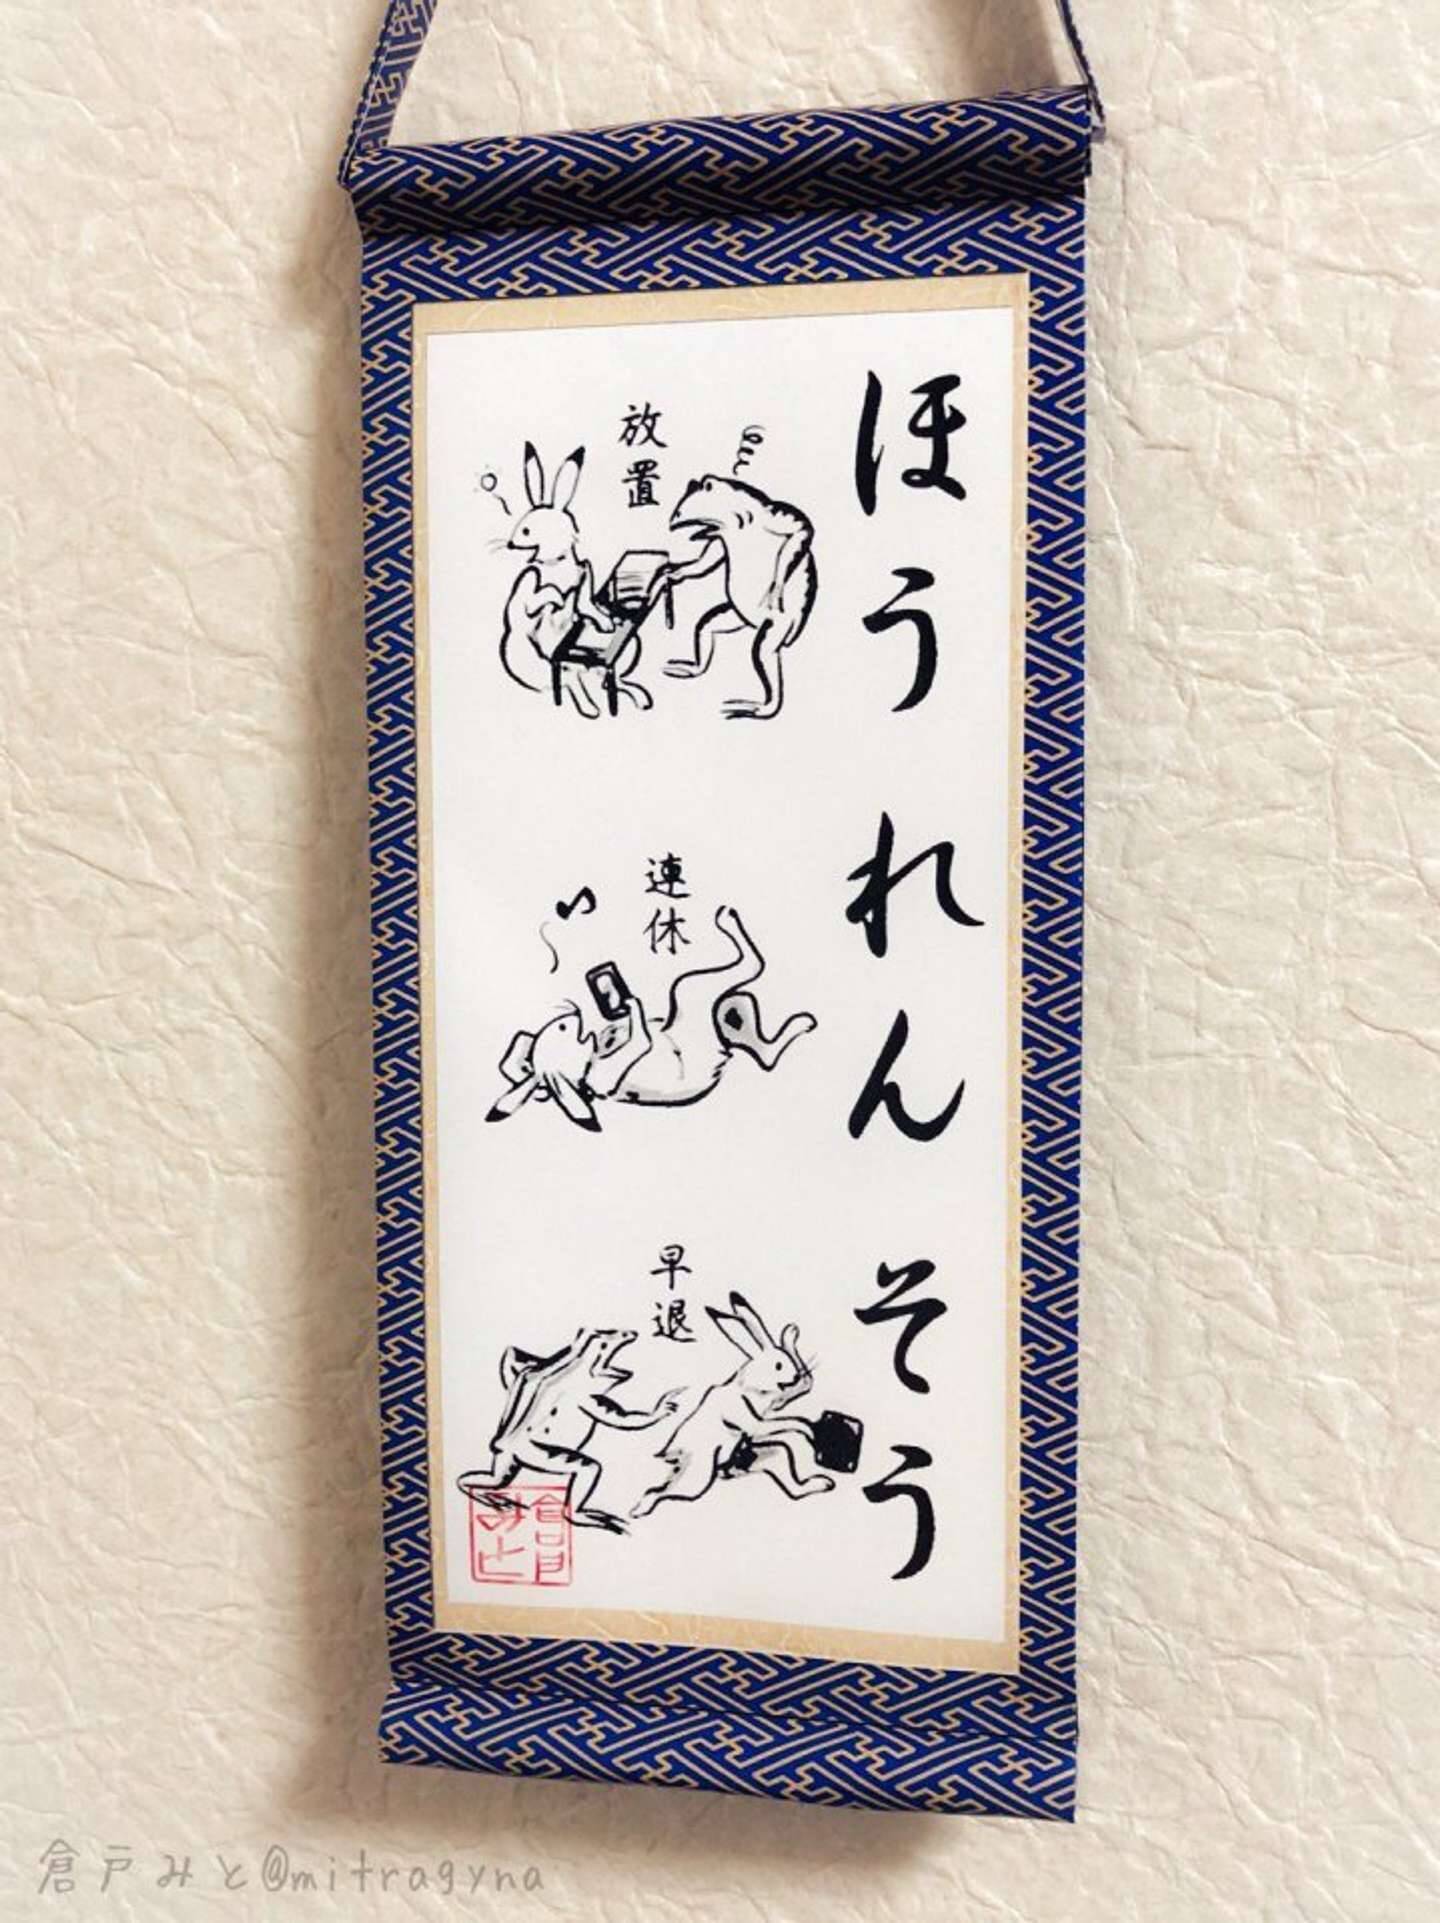 ほうれんそう
放置
連休
早退
倉戸
みと
倉戸みと@mitragyna